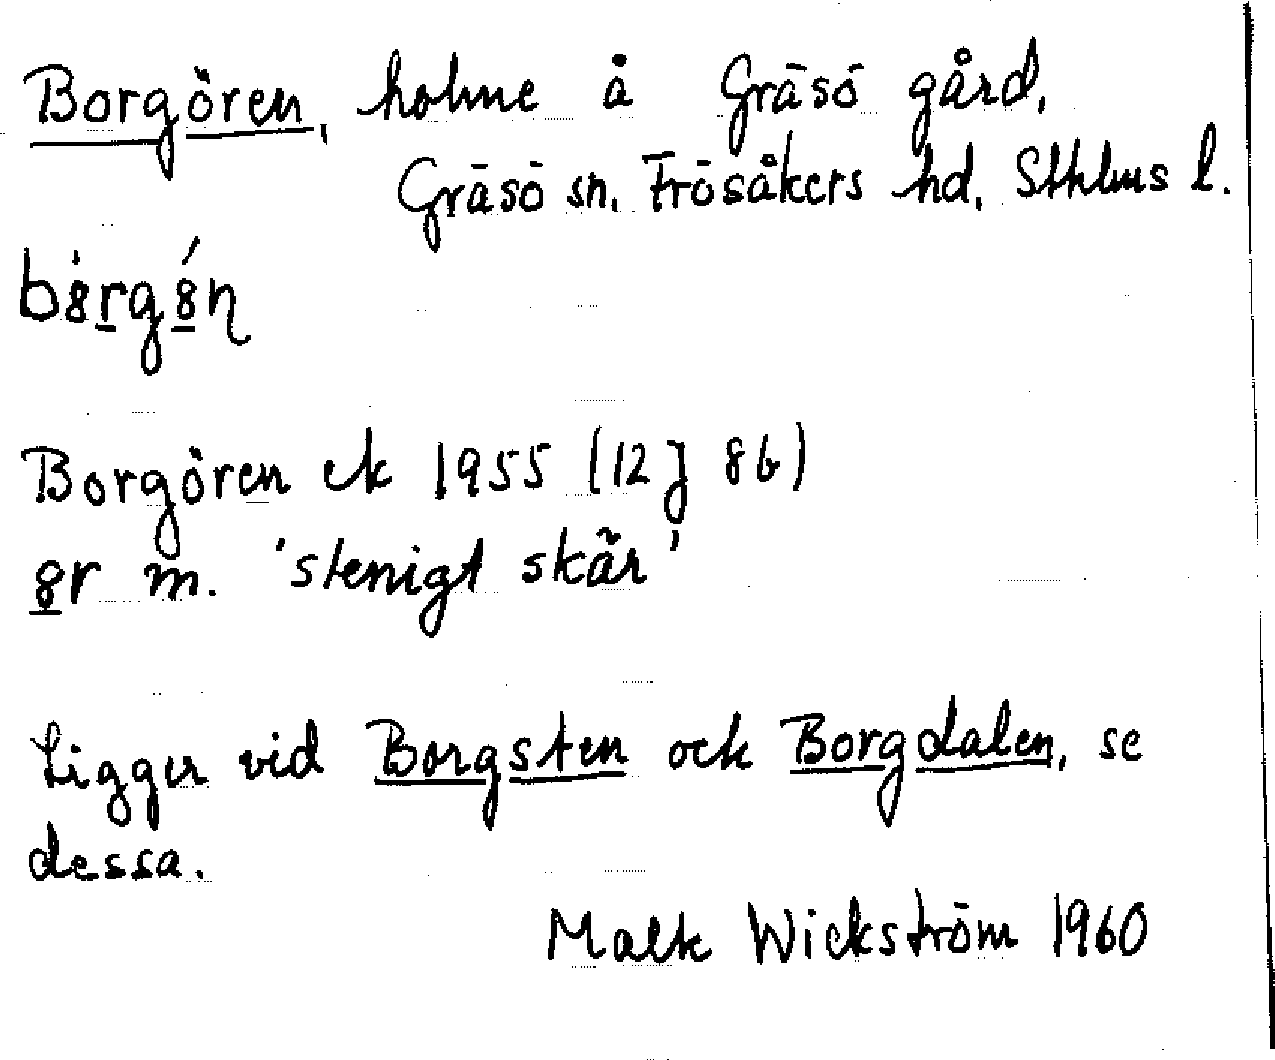 Borgören, holme å Gräsö gård,
Gräsö sn. Frösåkers hd, Sthlms l.
Borgören ek 1955 (12J 8b)
m. 'stenigt skär'
Ligger vid Borgsten och Borgdalen, se
dessa.
Wickström 1960